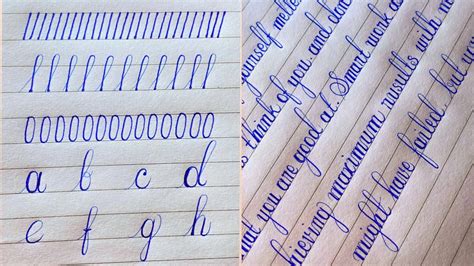 a b c d
e f g h
yourself
think of you and don
hat you are good at. Smart work a
hieving maximum results with m
might have failed, but